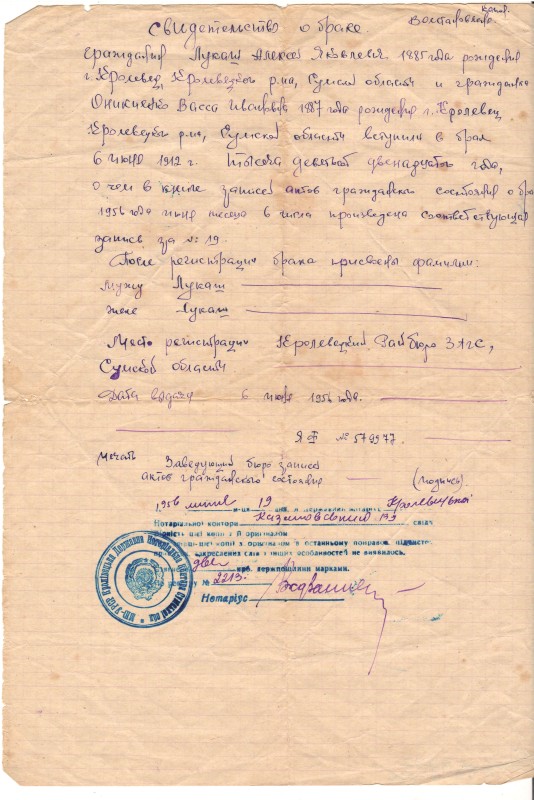 Копия.
Свидетельство о браке.
Гражданин Лукаш Алексей Яковлевич 1885 года рождения
г. Кролевец, Кролевецкого р-на, Сумской области и гражданка
Оникиенко Васса Ивановна 1887 года рождения г. Кролевец
Кролевецкого р-на, Сумской области вступили в брак
6 июня 1912 г. Тысяча девятьсот двенадцатого года,
о чем в книге записей актов гражданского состояния о браке
1956 года июня месяца 6 числа произведена соответствующая
запись за № 19.
После регистрации брака присвоены фамилии:
мужу Лукаш
жене Лукаш
Место регистрации Кролевецкий Райбюро ЗАГС,
Сумской области
Дата выдачи 6 июня 1956 года.
№ 579577.
Печать Заведующий бюро записей
актов гражданского состояния (подпись).
1956 липня 19 дня, я державний нотаріус Кролевецької
Нотаріальної контори свідчу
вірність цієї копії з її оригіналом
цієї копії з оригіналом в останньому поправок, підчисток,
закреслених слів і інших особливостей не виявилось.
две крб. держмитними марками.
По реєстру № 2213.
Нотаріус